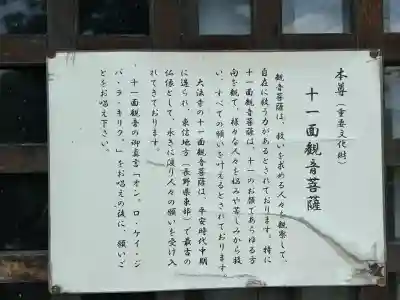 本尊（重要文化財）
十一面観音菩薩
観音菩薩は、救いを求める人々を観察して、
自在に救う力があるとされております。特に
十一面観音菩薩は、十一のお顔であらゆる方
向を観て、様々な人々を悩みや苦しみから救
い、すべての願いを叶えるとされております。
大法寺の十一面観音菩薩は、平安時代中期
に造られ、東信地方（長野県東部）で最古の
仏像として、永きに渡り人々の願いを受け入
れてきております。
、十一面観音の御真言「オン。ロ・ケイ・ジ
バ・ラ・キリク。」をお唱えの後に、願いご
とをお唱え下さい。